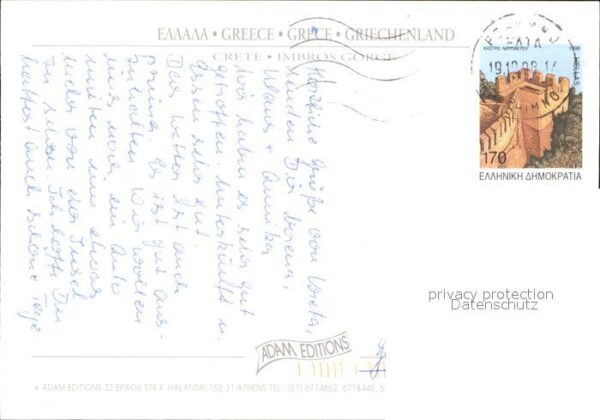 ΕΛΛΑΔΑ • GREECE • GRÈCE • GRIECHENLAND
CRETE - IMBROS GORGE
ΚΑΣΤΡΟ ΝΑΥΠΑΚΤΟΥ 1998
HELLAS
19.10.98.14
170
ΕΛΛΗΝΙΚΗ ΔΗΜΟΚΡΑΤΙΑ
Herzliche Grüße von Kreta,
senden Dir
Klaus + Annika
wir haben es sehr gut
getroffen. Unterkünft u.
Essen sehr gut.
Das Wetter ist auch
prima. Es ist gut aus-
zuhalten. Wir wollen
uns noch ein Auto
mieten um etwas
mehr von der Insel
zu sehen. Ich hoffe Du
hattest auch schöne Tage
privacy protection
Datenschutz
ADAM EDITIONS
ADAM EDITIONS 32 EPIROU STR K. HALANDRI 152 31 ATHENS TEL.: (01) 6774662, 6778440, 6